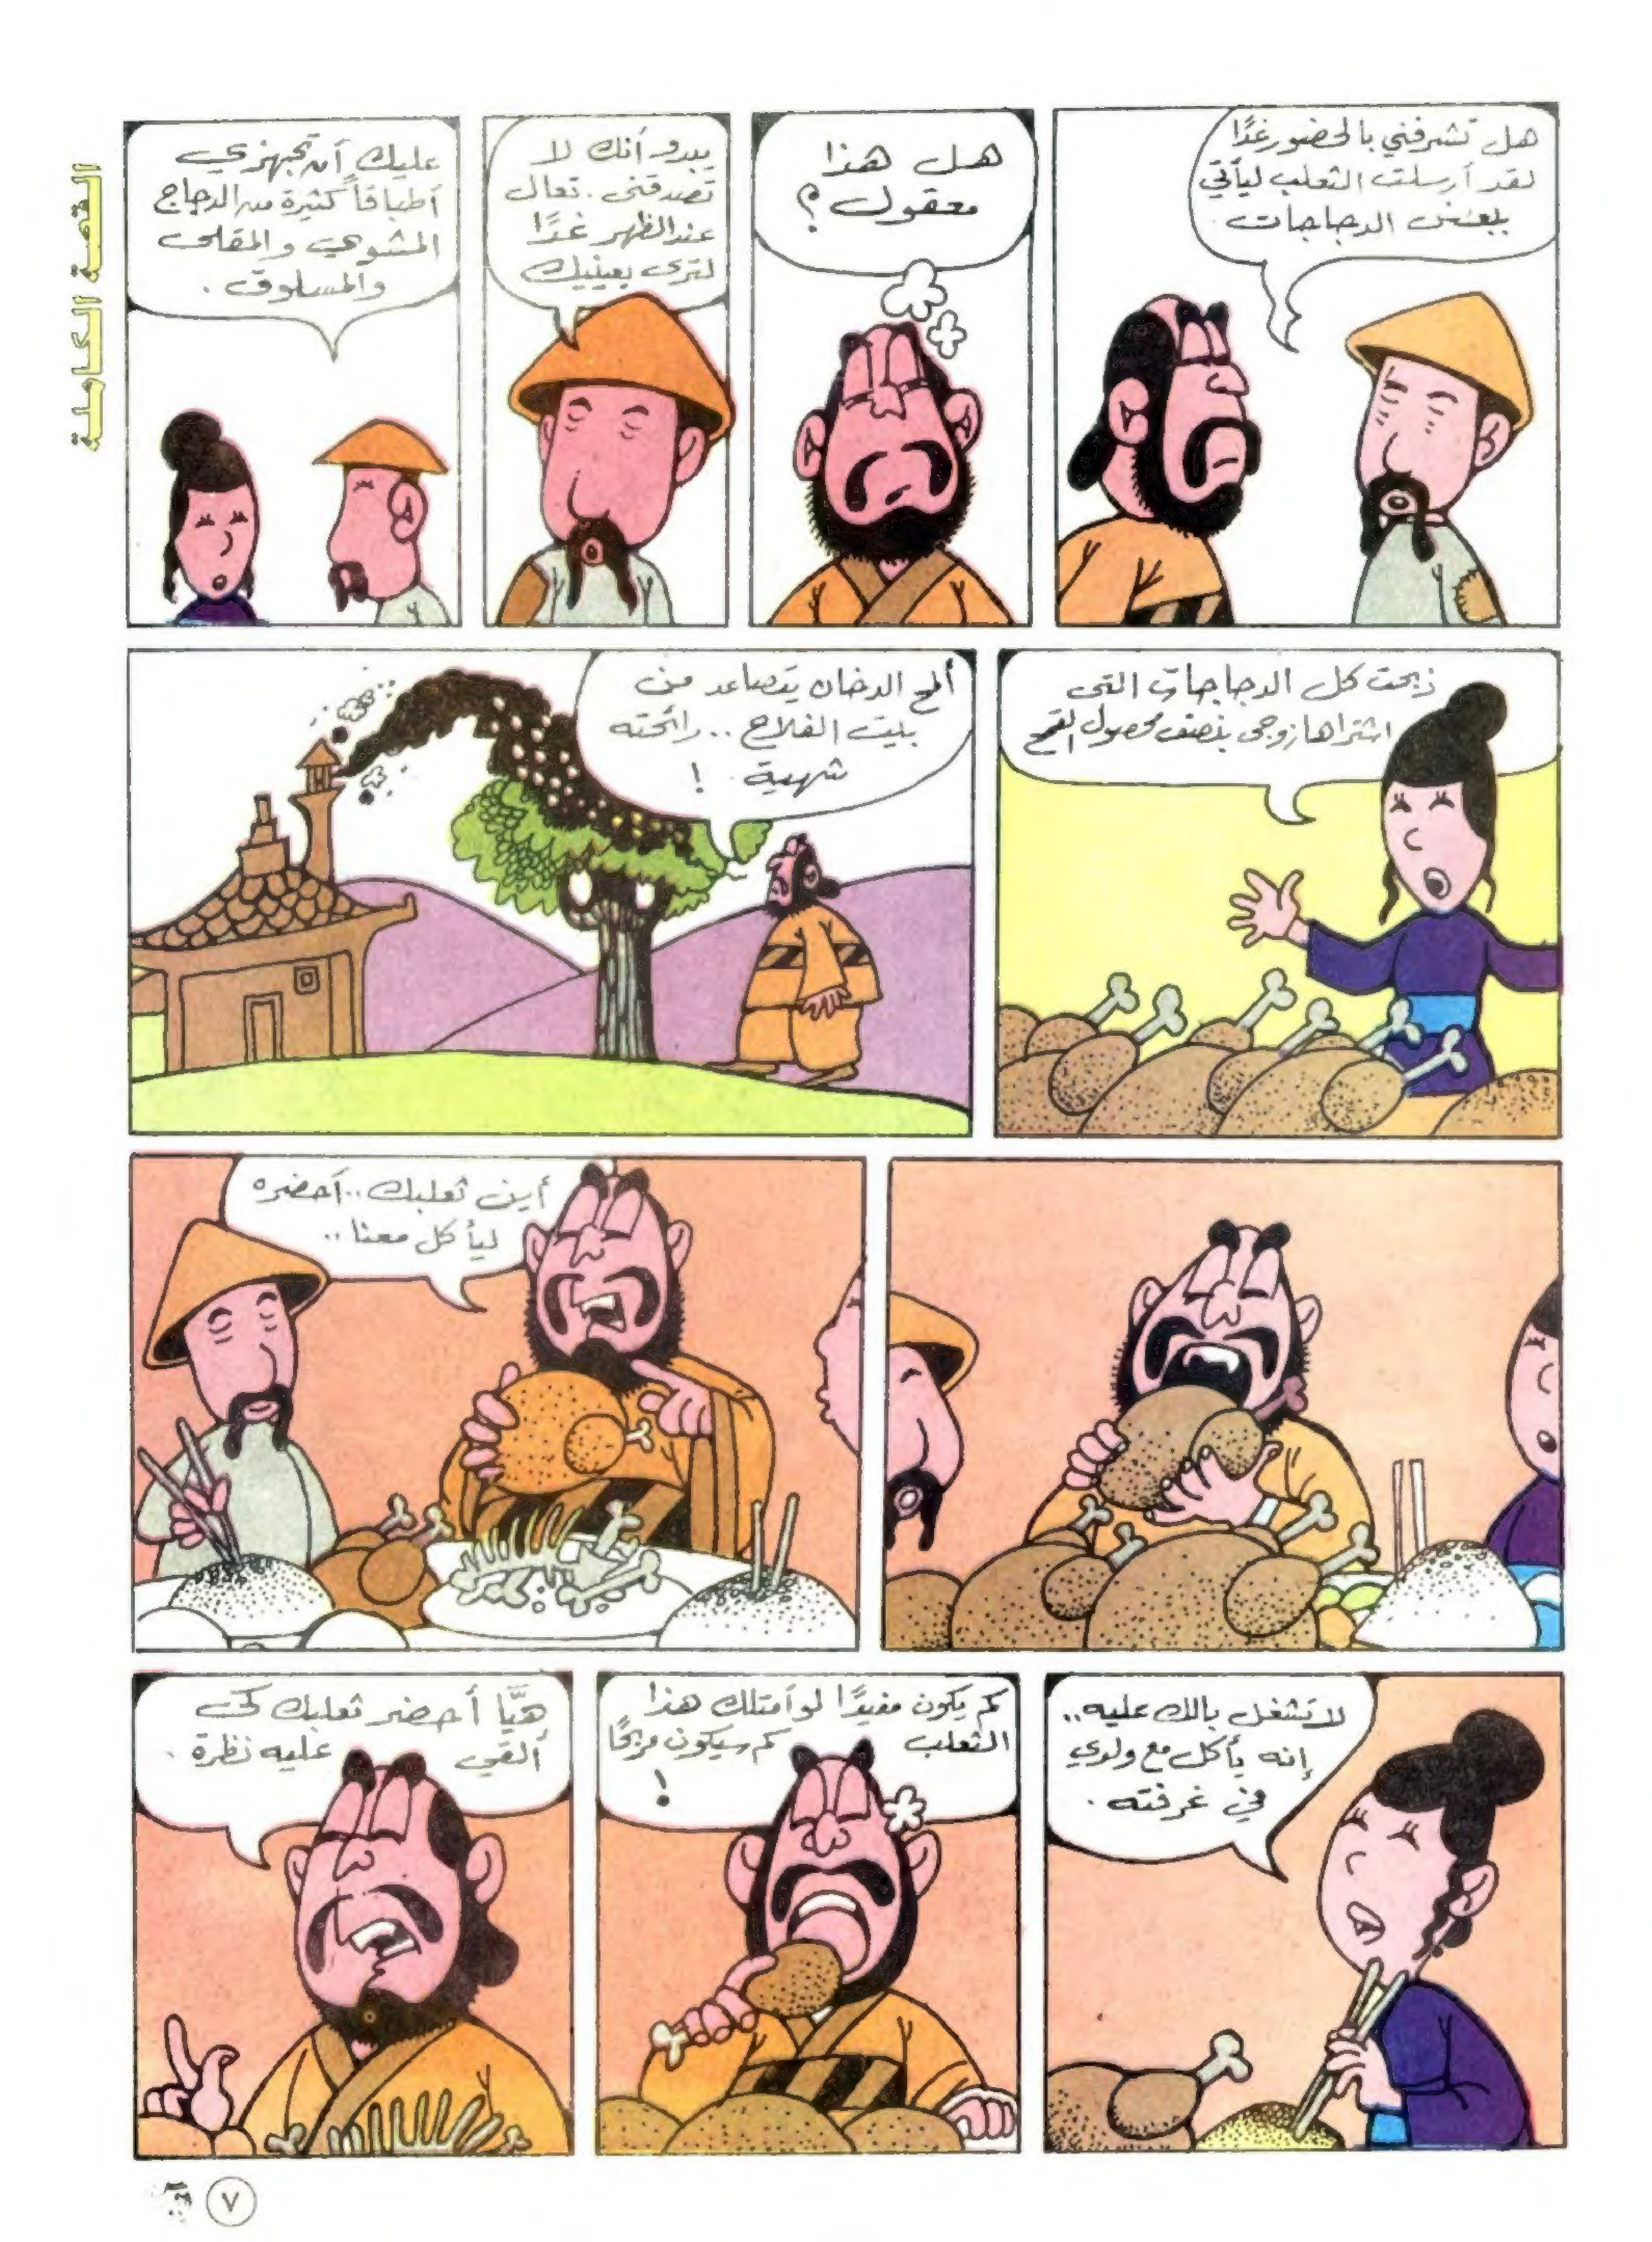 القصة الكاملة
هل تشرفني بالحضور غدًا
لقد أرسلت الثعلب ليأتي
ببعض الدجاجات.
هل هذا
معقول؟
يبدو أنك لا
تصدقني. تعال
عند الظهر غدًا
لترى بعينيك
عليك أن تجهزي
أطباقاً كثيرة من الدجاج
المشوي والمقلى
والمسلوق.
ذبحت كل الدجاجات التى
اشتراها زوجى بنصف محصول القمح
ألمح الدخان يتصاعد من
بيت الفلاح .. رائحته
شهية !
أين ثعلبك .. أحضره
ليأكل معنا ..
لا تشغل بالك عليه ..
إنه يأكل مع ولدي
في غرفته .
كم يكون مفيدًا لو أمتلك هذا
الثعلب كم سيكون مربحًا
!
هيَّا أحضر ثعلبك كى
ألقي عليه نظرة .
٧